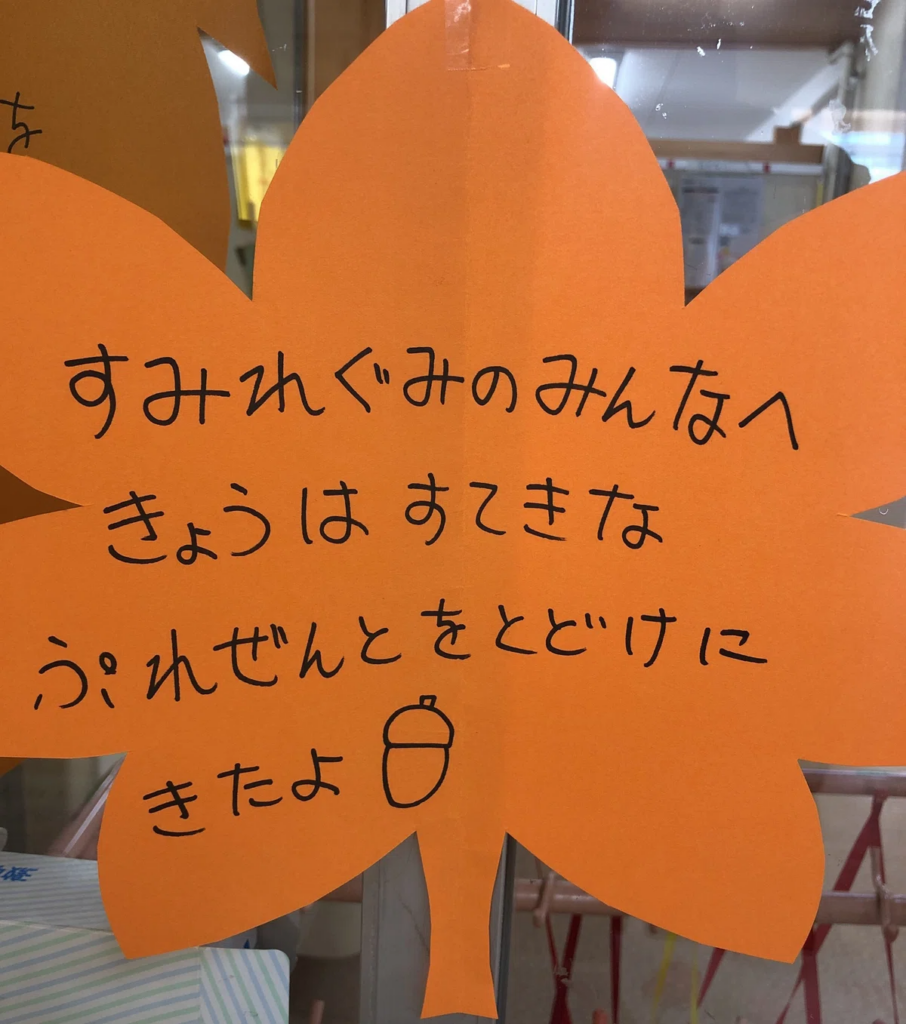 すみれぐみのみんなへ
きょうは すてきな
ぷれぜんとをとどけに
きたよ